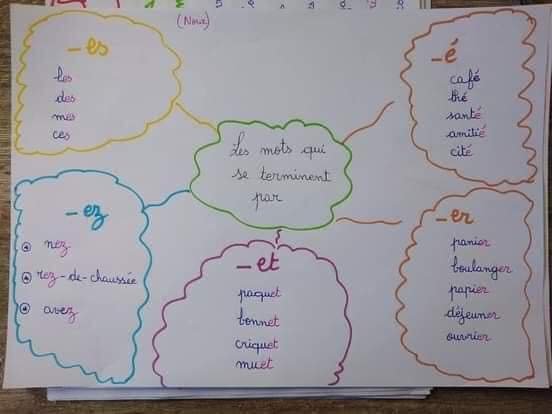 (Nour)
-es
les
des
mes
ces
-é
café
thé
santé
amitié
cité
Les mots qui
se terminent
par
-ez
nez
rez-de-chaussée
avez
-et
paquet
bonnet
criquet
muet
-er
panier
boulanger
papier
déjeuner
ouvrier